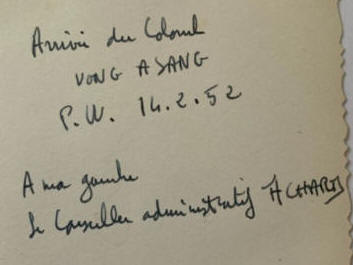 Arrivée du Colonel
VONG A SANG
P.W. 14.2.52
A ma gauche
le Conseiller administratif ACHARD